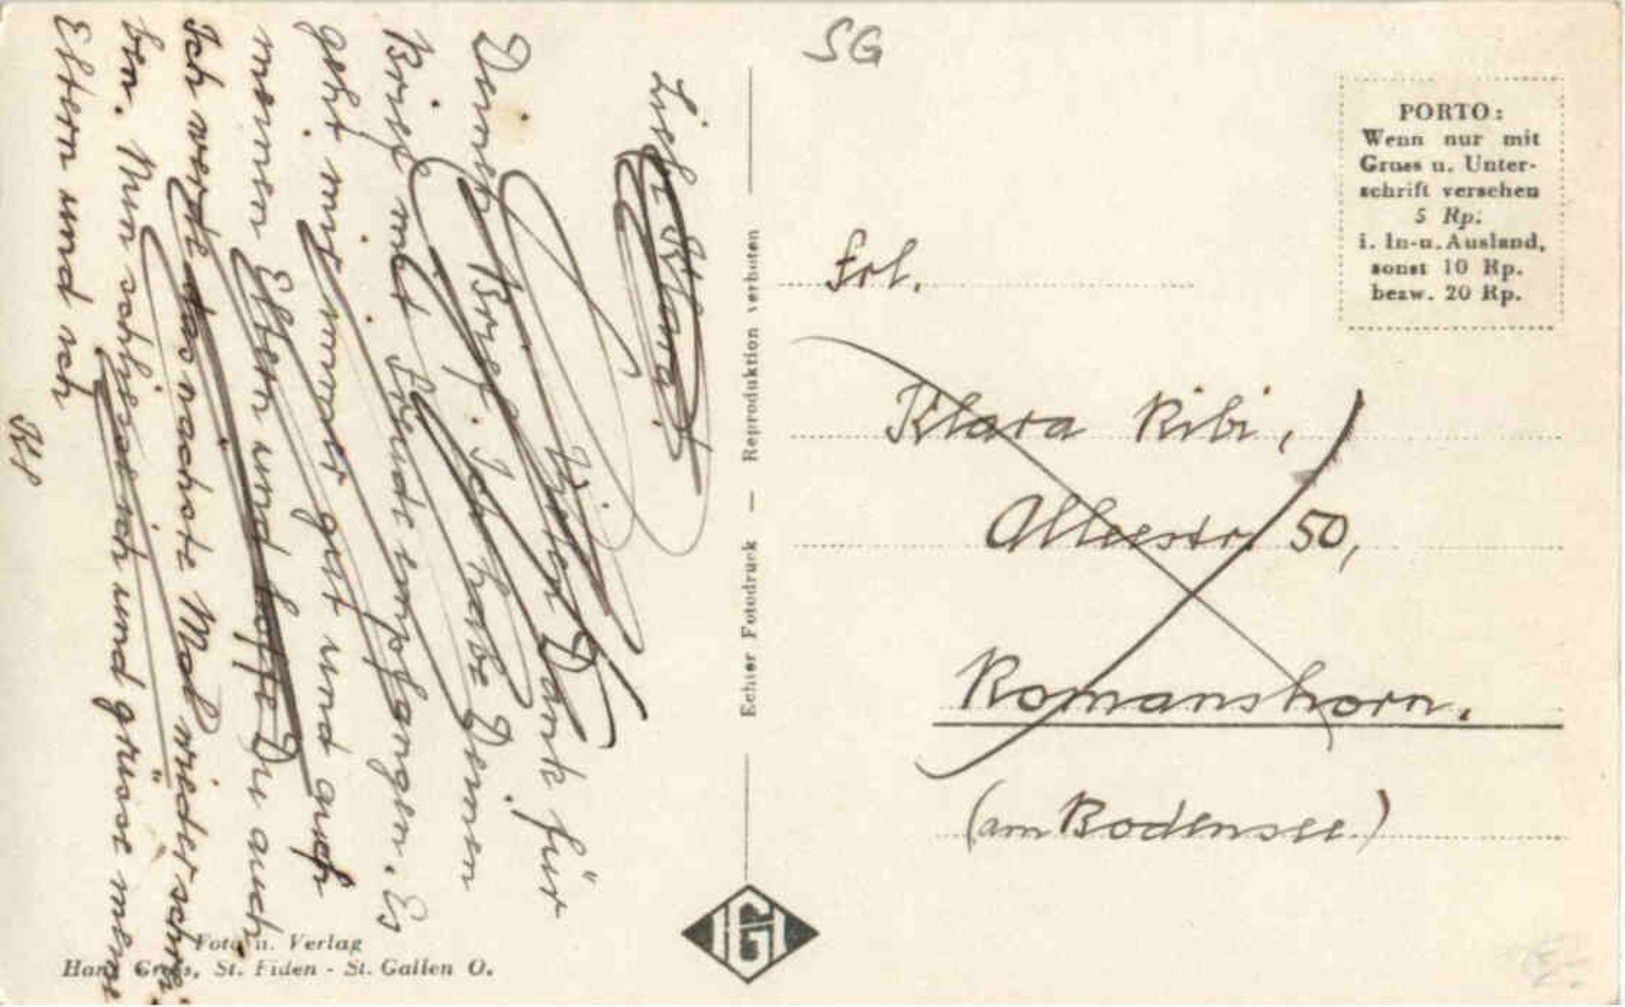 SG
PORTO:
Wenn nur mit
Gruss u. Unter-
schrift versehen
5 Rp.
i. In- u. Ausland,
sonst 10 Rp.
bezw. 20 Rp.
Frl.
Klara Ribi,
Alleestr. 50,
Romanshorn.
(am Bodensee)
Liebe Klara!
Vielen Dank für
Deinen Brief. Ich habe Deinen
Brief mit Freude empfangen. Es
geht mir immer gut und auch
meinen Eltern und hoffe Du auch.
Ich werde das nächste Mal wieder schrei-
ben. Nun schliesse ich und grüsse meine
Eltern und ich
Echter Fotodruck — Reproduktion verboten
Foto u. Verlag
Hans Gross, St. Fiden - St. Gallen O.